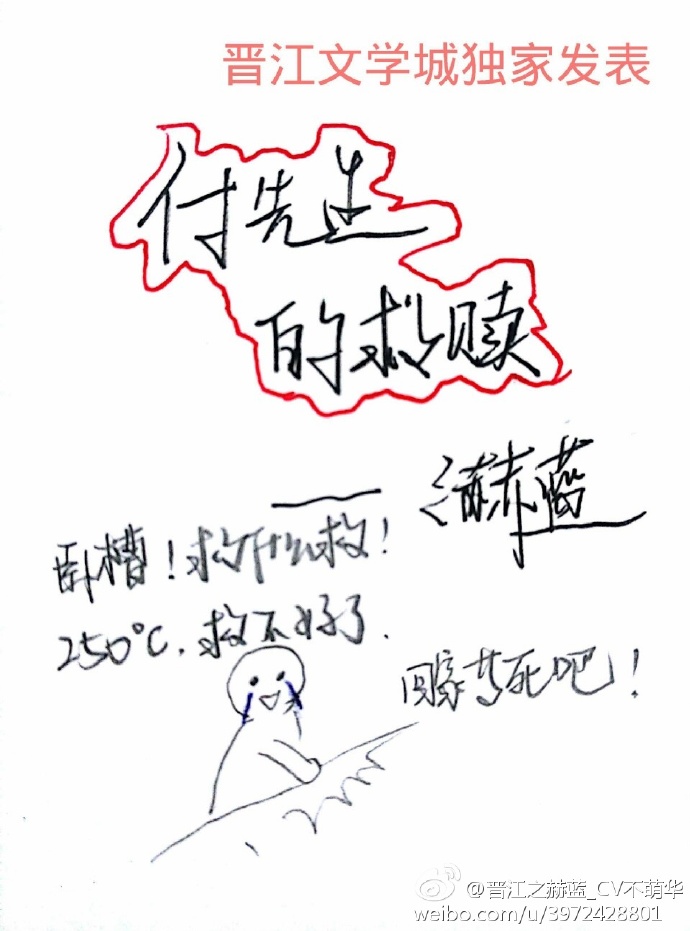 晋江文学城独家发表
付先生
的救赎
——赫蓝
卧槽！救什么救！
250℃，救不好了.
回家等死吧！
@晋江之赫蓝_CV不萌华
weibo.com/u/3972428801